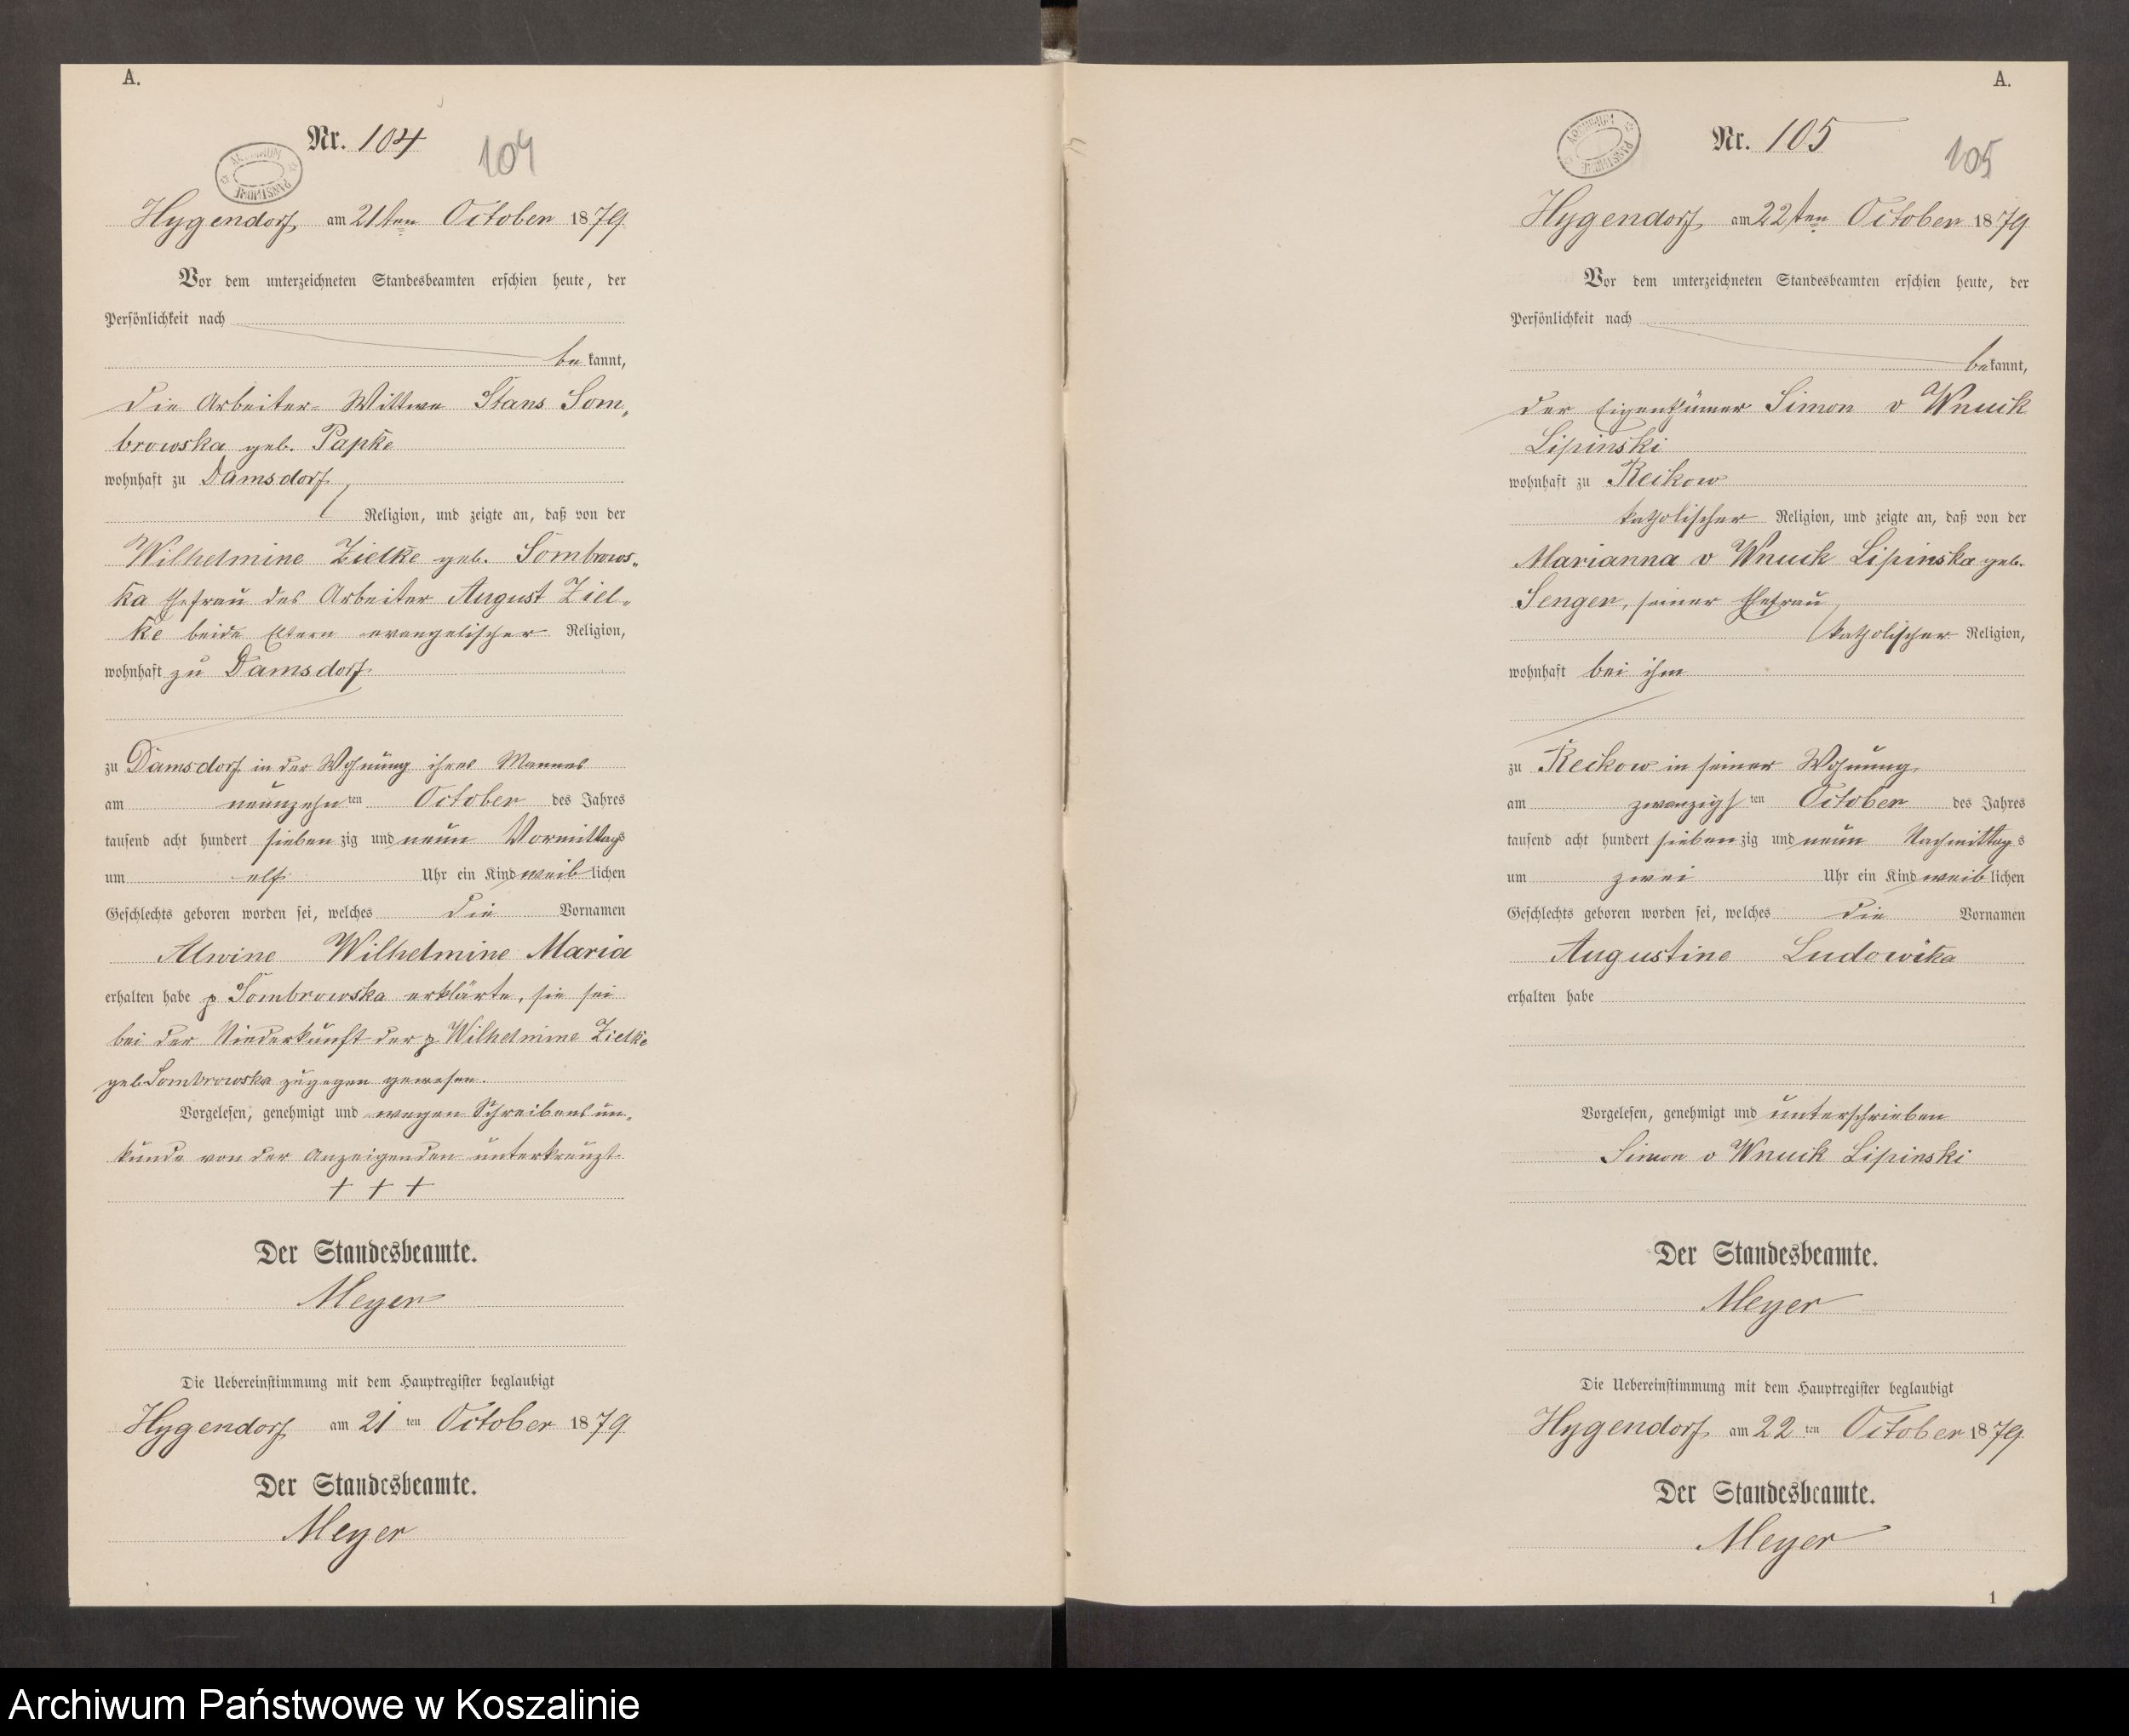 A.
Nr. 104
104
Hygendorf, am 21ten October 1879
Vor dem unterzeichneten Standesbeamten erschien heute, der
Persönlichkeit nach
bekannt,
die Arbeiter-Wittwe Stans Som-
browska geb. Papke
wohnhaft zu Damsdorf
Religion, und zeigte an, daß von der
Wilhelmine Zielke geb. Sombrows-
ka Ehefrau des Arbeiter August Ziel-
ke beide Eltern evangelischer Religion,
wohnhaft zu Damsdorf
zu Damsdorf in der Wohnung ihres Mannes
am neunzehnten October des Jahres
tausend acht hundert siebenzig und neun Vormittags
um elf Uhr ein Kind weiblichen
Geschlechts geboren worden sei, welches die Vornamen
Alwine Wilhelmine Maria
erhalten habe p Sombrowska erklärte, sie sei
bei der Niederkunft der p Wilhelmine Zielke
geb. Sombrowska zugegen gewesen.
Vorgelesen, genehmigt und wegen Schreibensun-
kunde von der Anzeigenden unterkreuzt
+ + +
Der Standesbeamte.
Meyer
Die Uebereinstimmung mit dem Hauptregister beglaubigt
Hygendorf am 21ten October 1879
Der Standesbeamte.
Meyer
A.
Nr. 105
105
Hygendorf, am 22ten October 1879
Vor dem unterzeichneten Standesbeamten erschien heute, der
Persönlichkeit nach
bekannt,
der Eigenthümer Simon v Wnuck
Lipinski
wohnhaft zu Reckow
katholischer Religion, und zeigte an, daß von der
Marianna v Wnuck Lipinska geb.
Senger, seiner Ehefrau
katholischer Religion,
wohnhaft bei ihm
zu Reckow in seiner Wohnung
am zwanzigsten October des Jahres
tausend acht hundert siebenzig und neun Nachmittags
um zwei Uhr ein Kind weiblichen
Geschlechts geboren worden sei, welches die Vornamen
Augustine Ludowika
erhalten habe
Vorgelesen, genehmigt und unterschrieben
Simon v Wnuck Lipinski
Der Standesbeamte.
Meyer
Die Uebereinstimmung mit dem Hauptregister beglaubigt
Hygendorf, am 22ten October 1879
Der Standesbeamte.
Meyer
1
Archiwum Państwowe w Koszalinie